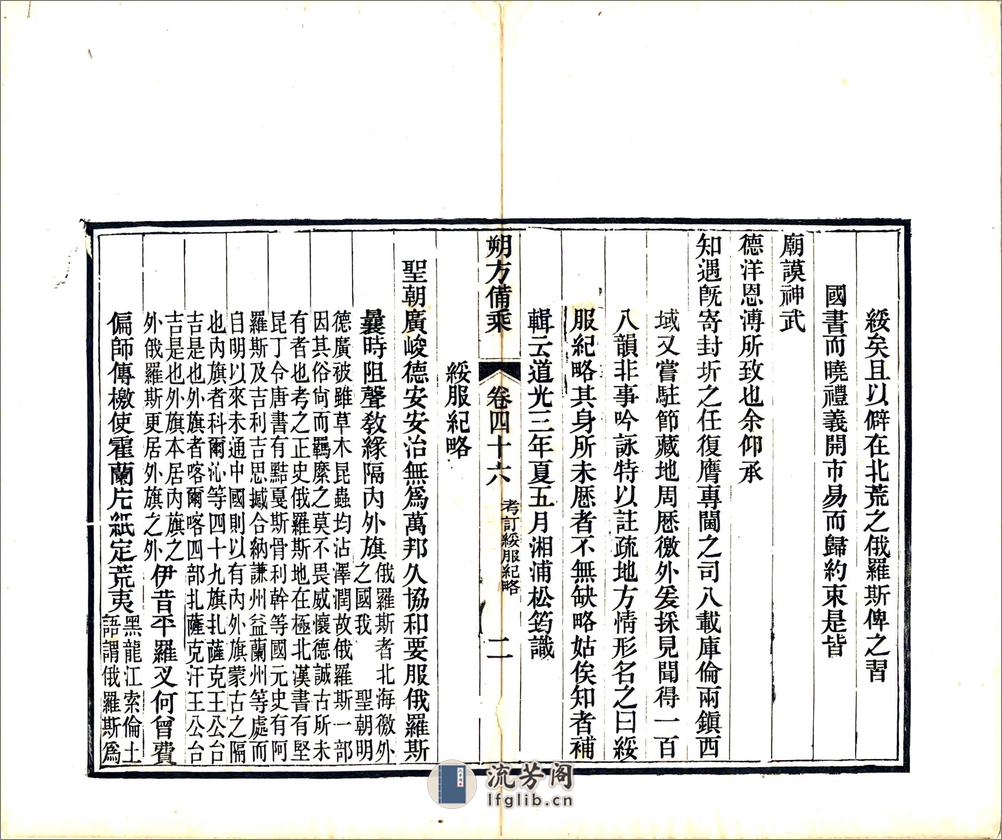 綏矣且以僻在北荒之俄羅斯俾之習
國書而曉禮義開市易而歸約束是皆
廟謨神武
德洋恩溥所致也余仰承
知遇旣寄封圻之任復膺專閫之司八載庫倫兩鎮西
域又嘗駐節藏地周歷徼外爰採見聞得一百
八韻非事吟詠特以註疏地方情形名之曰綏
服紀略其身所未歷者不無缺略姑俟知者補
輯云道光三年夏五月湘浦松筠識
朔方備乘 卷四十六 考訂綏服紀略 二
綏服紀略
聖朝廣峻德安安治無爲萬邦久協和要服俄羅斯
曩時阻聲敎緣隔內外旗 俄羅斯者北海徼外
之國我 聖朝明
德廣被雖草木昆蟲均沾澤潤故俄羅斯一部
因其俗尙而羈縻之莫不畏威懷德誠古所未
有者也考之正史俄羅斯地在極北漢書有堅
昆丁令唐書有黠戛斯骨利幹等國元史有阿
羅斯及吉利吉思撼合納謙州益蘭州等處而
自明以來未通中國則以有內外旗蒙古之隔
也內旗者科爾沁等四十九旗扎薩克王公台
吉是也外旗者喀爾喀四部扎薩克汗王公台
吉是也外旗本居內旗之
外俄羅斯更居外旗之外 伊昔平羅叉何曾費
偏師傳檄使霍蘭片紙定荒夷 黑龍江索倫土
語謂俄羅斯爲
流芳阁
lfglib.cn